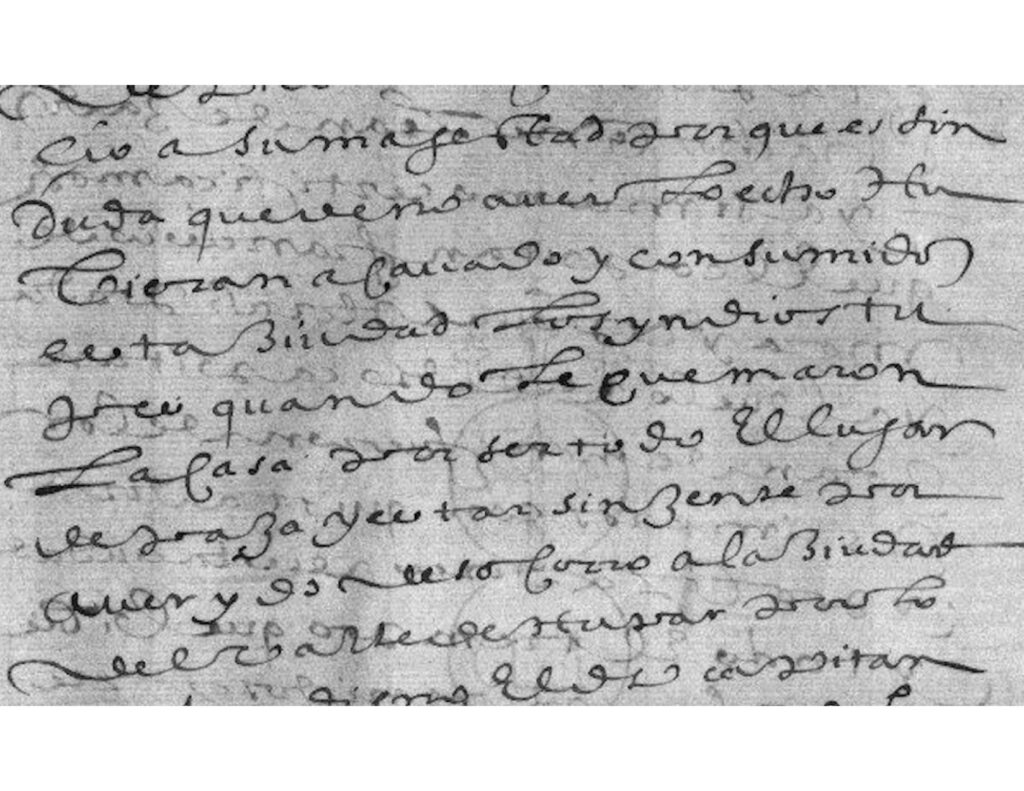 cio a su magestad por que es sin
duda que de no aver hecho hu
vieran acavado y consumido
esta ziudad los yndios tu
pes quando le quemaron
la casa por ser todo el lugar
de paxa y estar sin xente por
aver ydo de socorro a la ziudad
del valle de upar por lo
el dho capitan